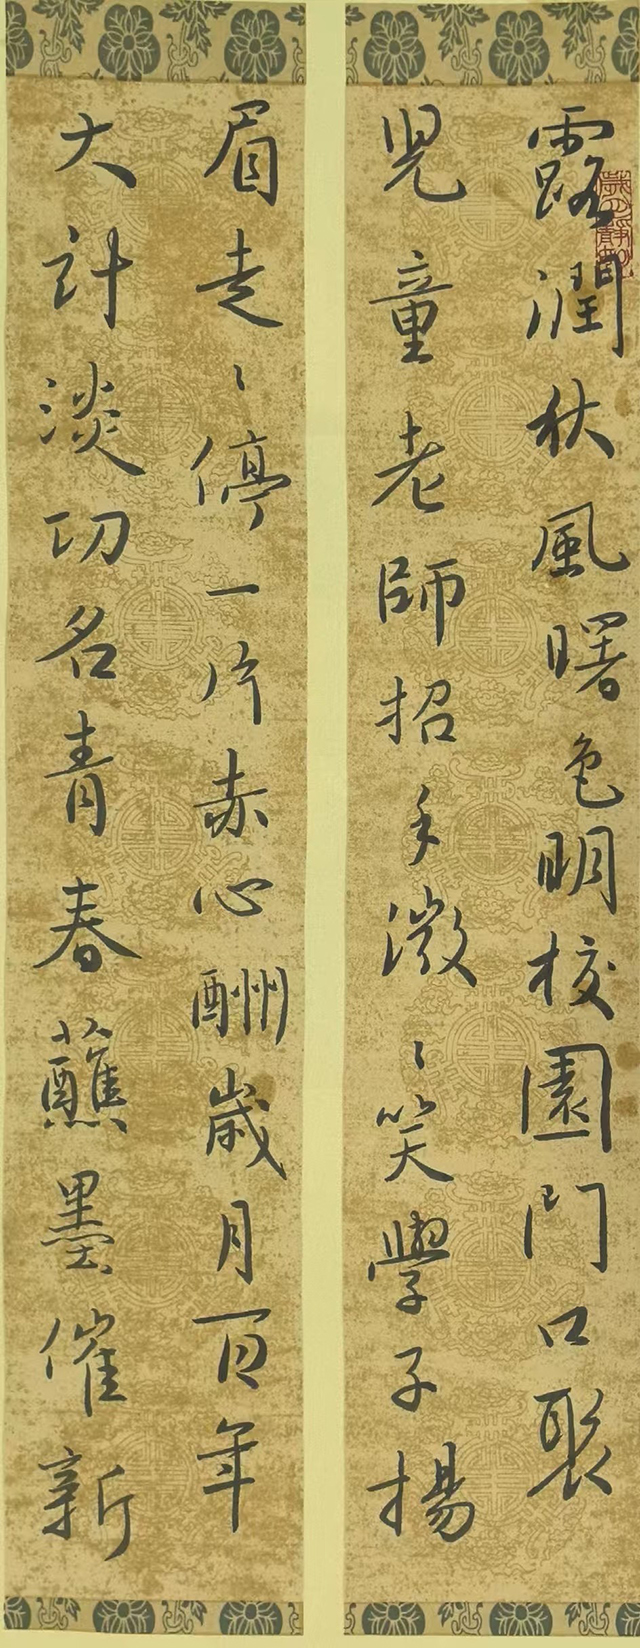 露潤秋風曙色明校園門口聚
児童老師招手微〻笑學子揚
眉走〻停一片赤心酬歲月百年
大計淡功名青春蘸墨催新